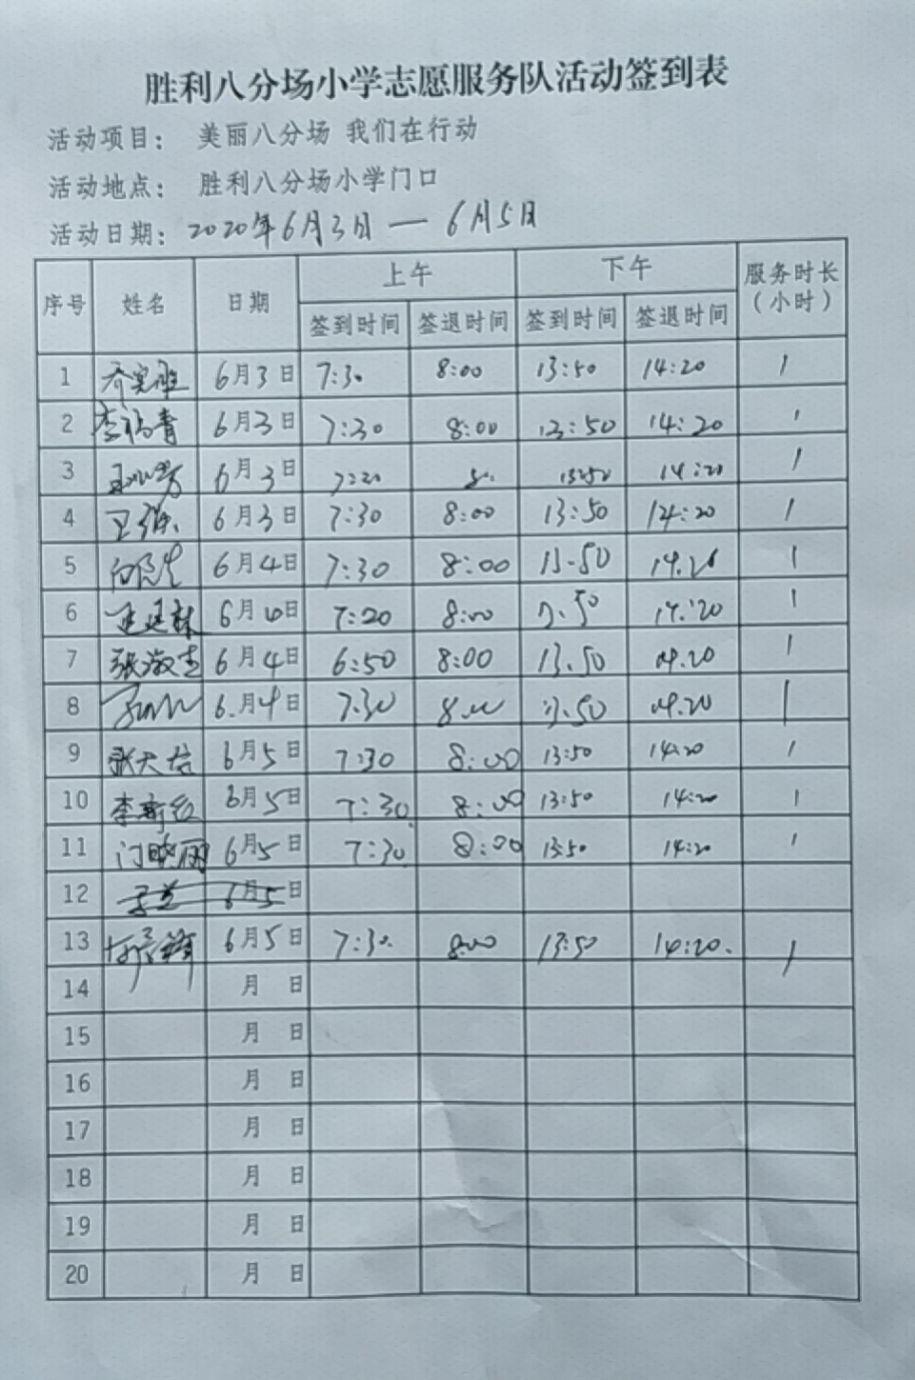 胜利八分场小学志愿服务队活动签到表
活动项目： 美丽八分场 我们在行动
活动地点： 胜利八分场小学门口
活动日期：2020年6月3日 — 6月5日
序号 姓名 日期 上午 下午 服务时长（小时）
签到时间 签退时间 签到时间 签退时间
1 6月3日 7:30 8:00 13:50 14:20 1
2 李福青 6月3日 7:30 8:00 13:50 14:20 1
3 6月3日 13:50 14:20 1
4 6月3日 7:30 8:00 13:50 14:20 1
5 6月4日 7:30 8:00 13.50 14.20 1
6 6月4日 7:20 8:00 14:20 1
7 张激杰 6月4日 6:50 8:00 13.50 14.20 1
8 6.月4日 7:30 8.00 13.50 14.20 1
9 张大信 6月5日 7:30 8:00 13:50 14:20 1
10 李新红 6月5日 7:30 8:00 13:50 14:20 1
11 门晓丽 6月5日 7:30 8:00 13:50 14:20 1
12 6月5日
13 6月5日 7:30. 8:00 13:50 14:20. 1
14 月 日
15 月 日
16 月 日
17 月 日
18 月 日
19 月 日
20 月 日